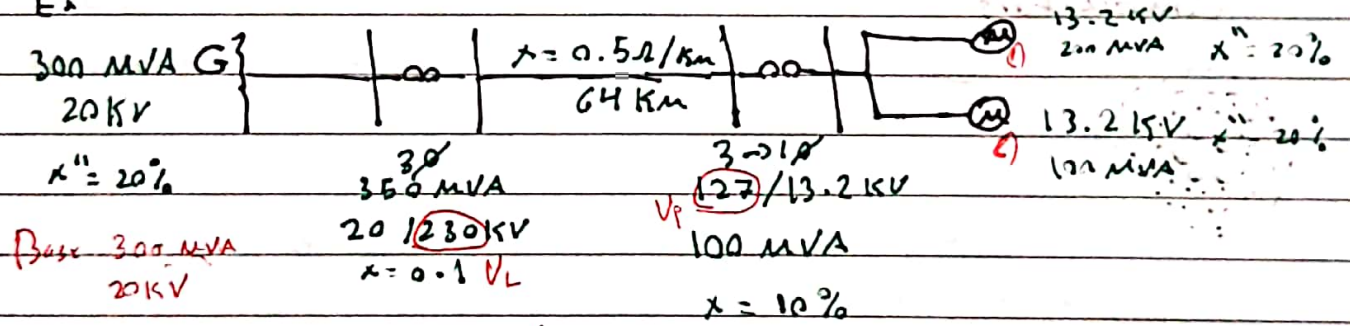 Ex
300 MVA G
20 KV
x" = 20%
Base 300 MVA
20 KV
3φ
350 MVA
20 / 230 KV
x = 0.1 VL
x = 0.5 Ω/Km
64 Km
3 → 1φ
Vp 127 / 13.2 KV
100 MVA
x = 10%
M 1) 13.2 KV
200 MVA x" = 20%
M 2) 13.2 KV x" = 20%
100 MVA